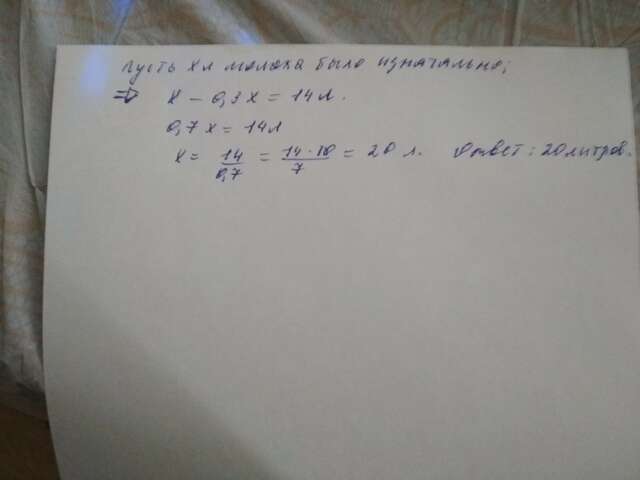 Пусть х л молока было изначально;
⇒ х - 0,3х = 14 л.
0,7х = 14л
х = 14/0,7 = 14·10/7 = 20 л. Ответ: 20 литров.